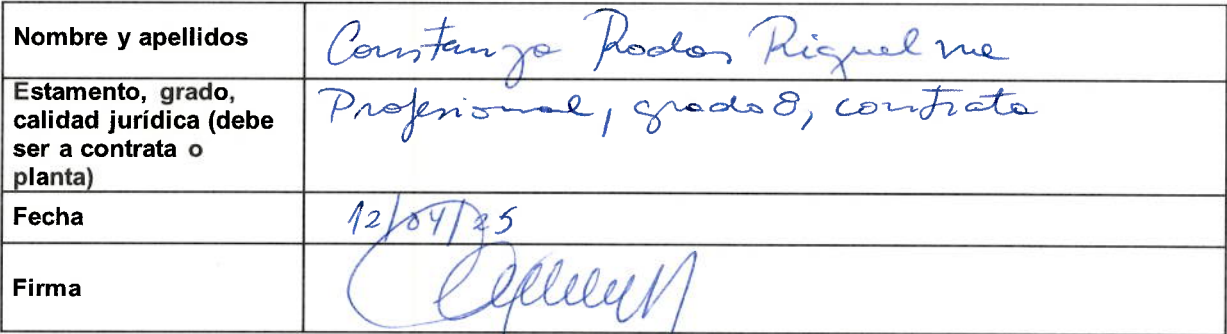 Nombre y apellidos
Constanza Rodas Riquelme
Estamento, grado,
calidad jurídica (debe
ser a contrata o
planta)
Profesional, grado 8, contrata
Fecha
12/04/25
Firma